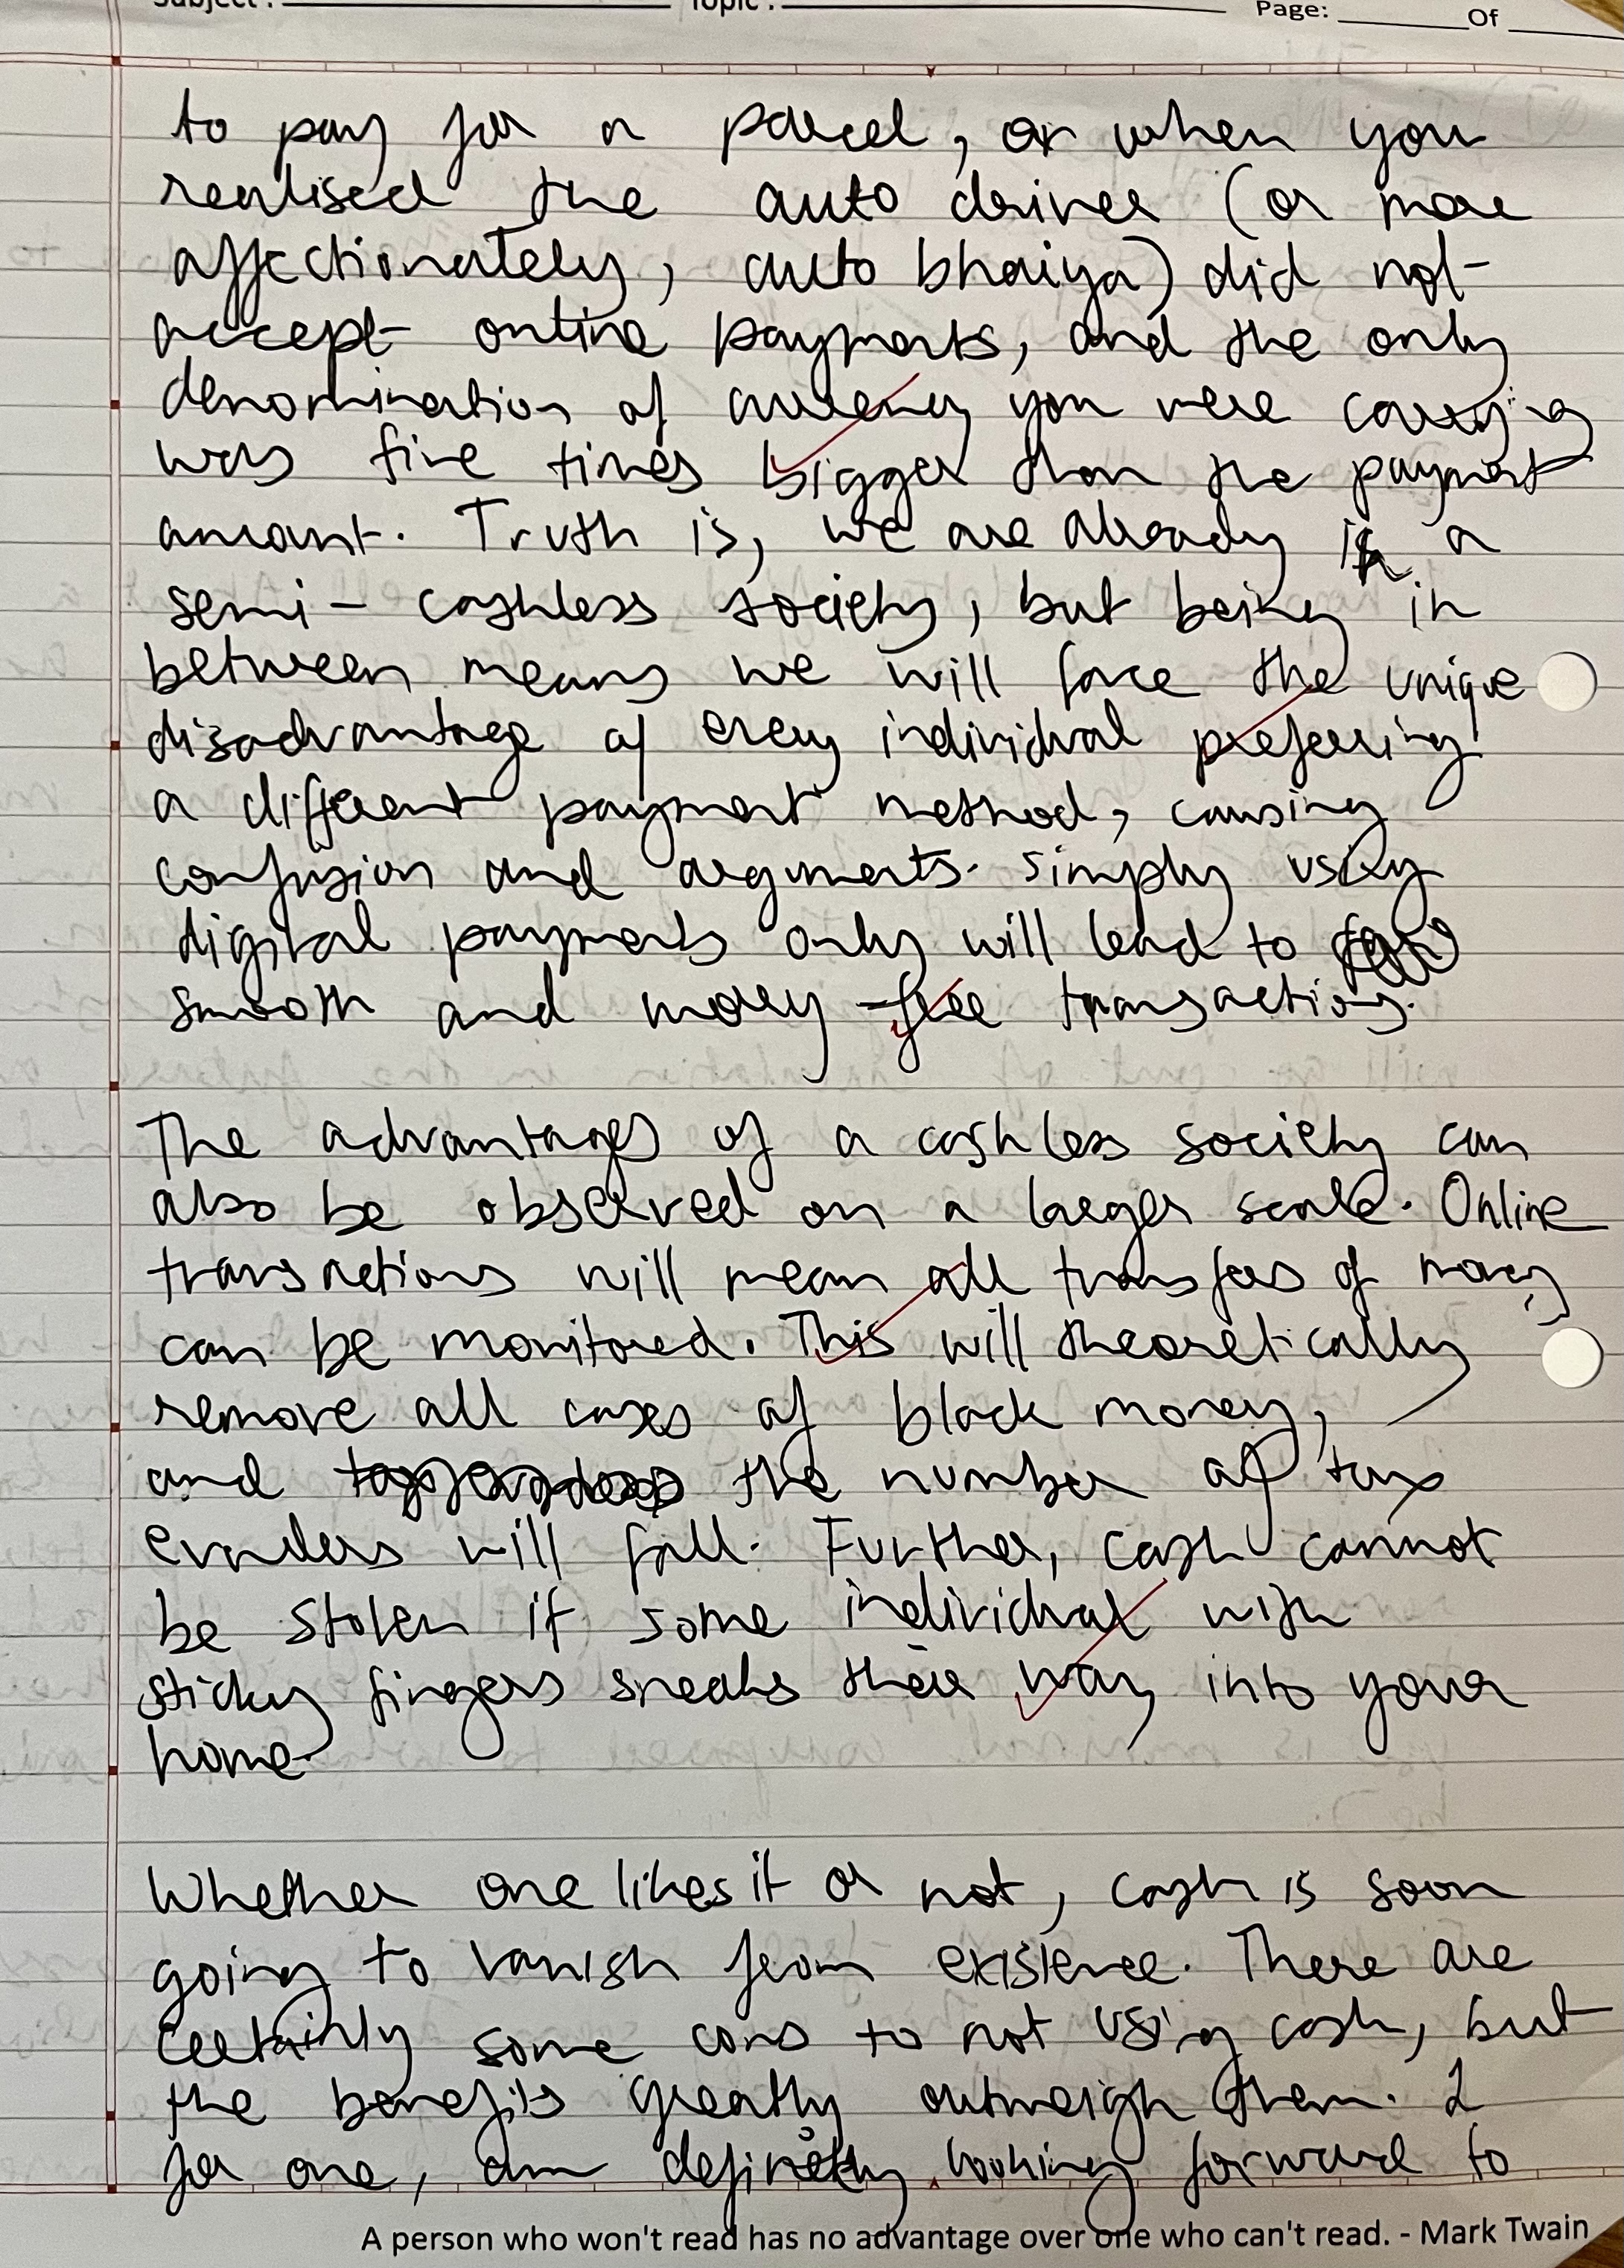 Subject : Topic : Page: Of
to pay for a parcel, or when you
realised the auto driver (or more
affectionately, auto bhaiya) did not
accept online payments, and the only
denomination of currency you were carrying
was five times bigger than the payment
amount. Truth is, we are already in a
semi-cashless society, but being in
between means we will face the unique
disadvantage of every individual preferring
a different payment method, causing
confusion and arguments. Simply using
digital payments only will lead to
smooth and money-free transactions.
The advantages of a cashless society can
also be observed on a larger scale. Online
transactions will mean all transfers of money
can be monitored. This will theoretically
remove all cases of black money,
and the number of tax
evaders will fall. Further, cash cannot
be stolen if some individual with
sticky fingers sneaks their way into your
home.
Whether one likes it or not, cash is soon
going to vanish from existence. There are
certainly some cons to not using cash, but
the benefits greatly outweigh them. I
for one, am definitely looking forward to
A person who won't read has no advantage over one who can't read. - Mark Twain